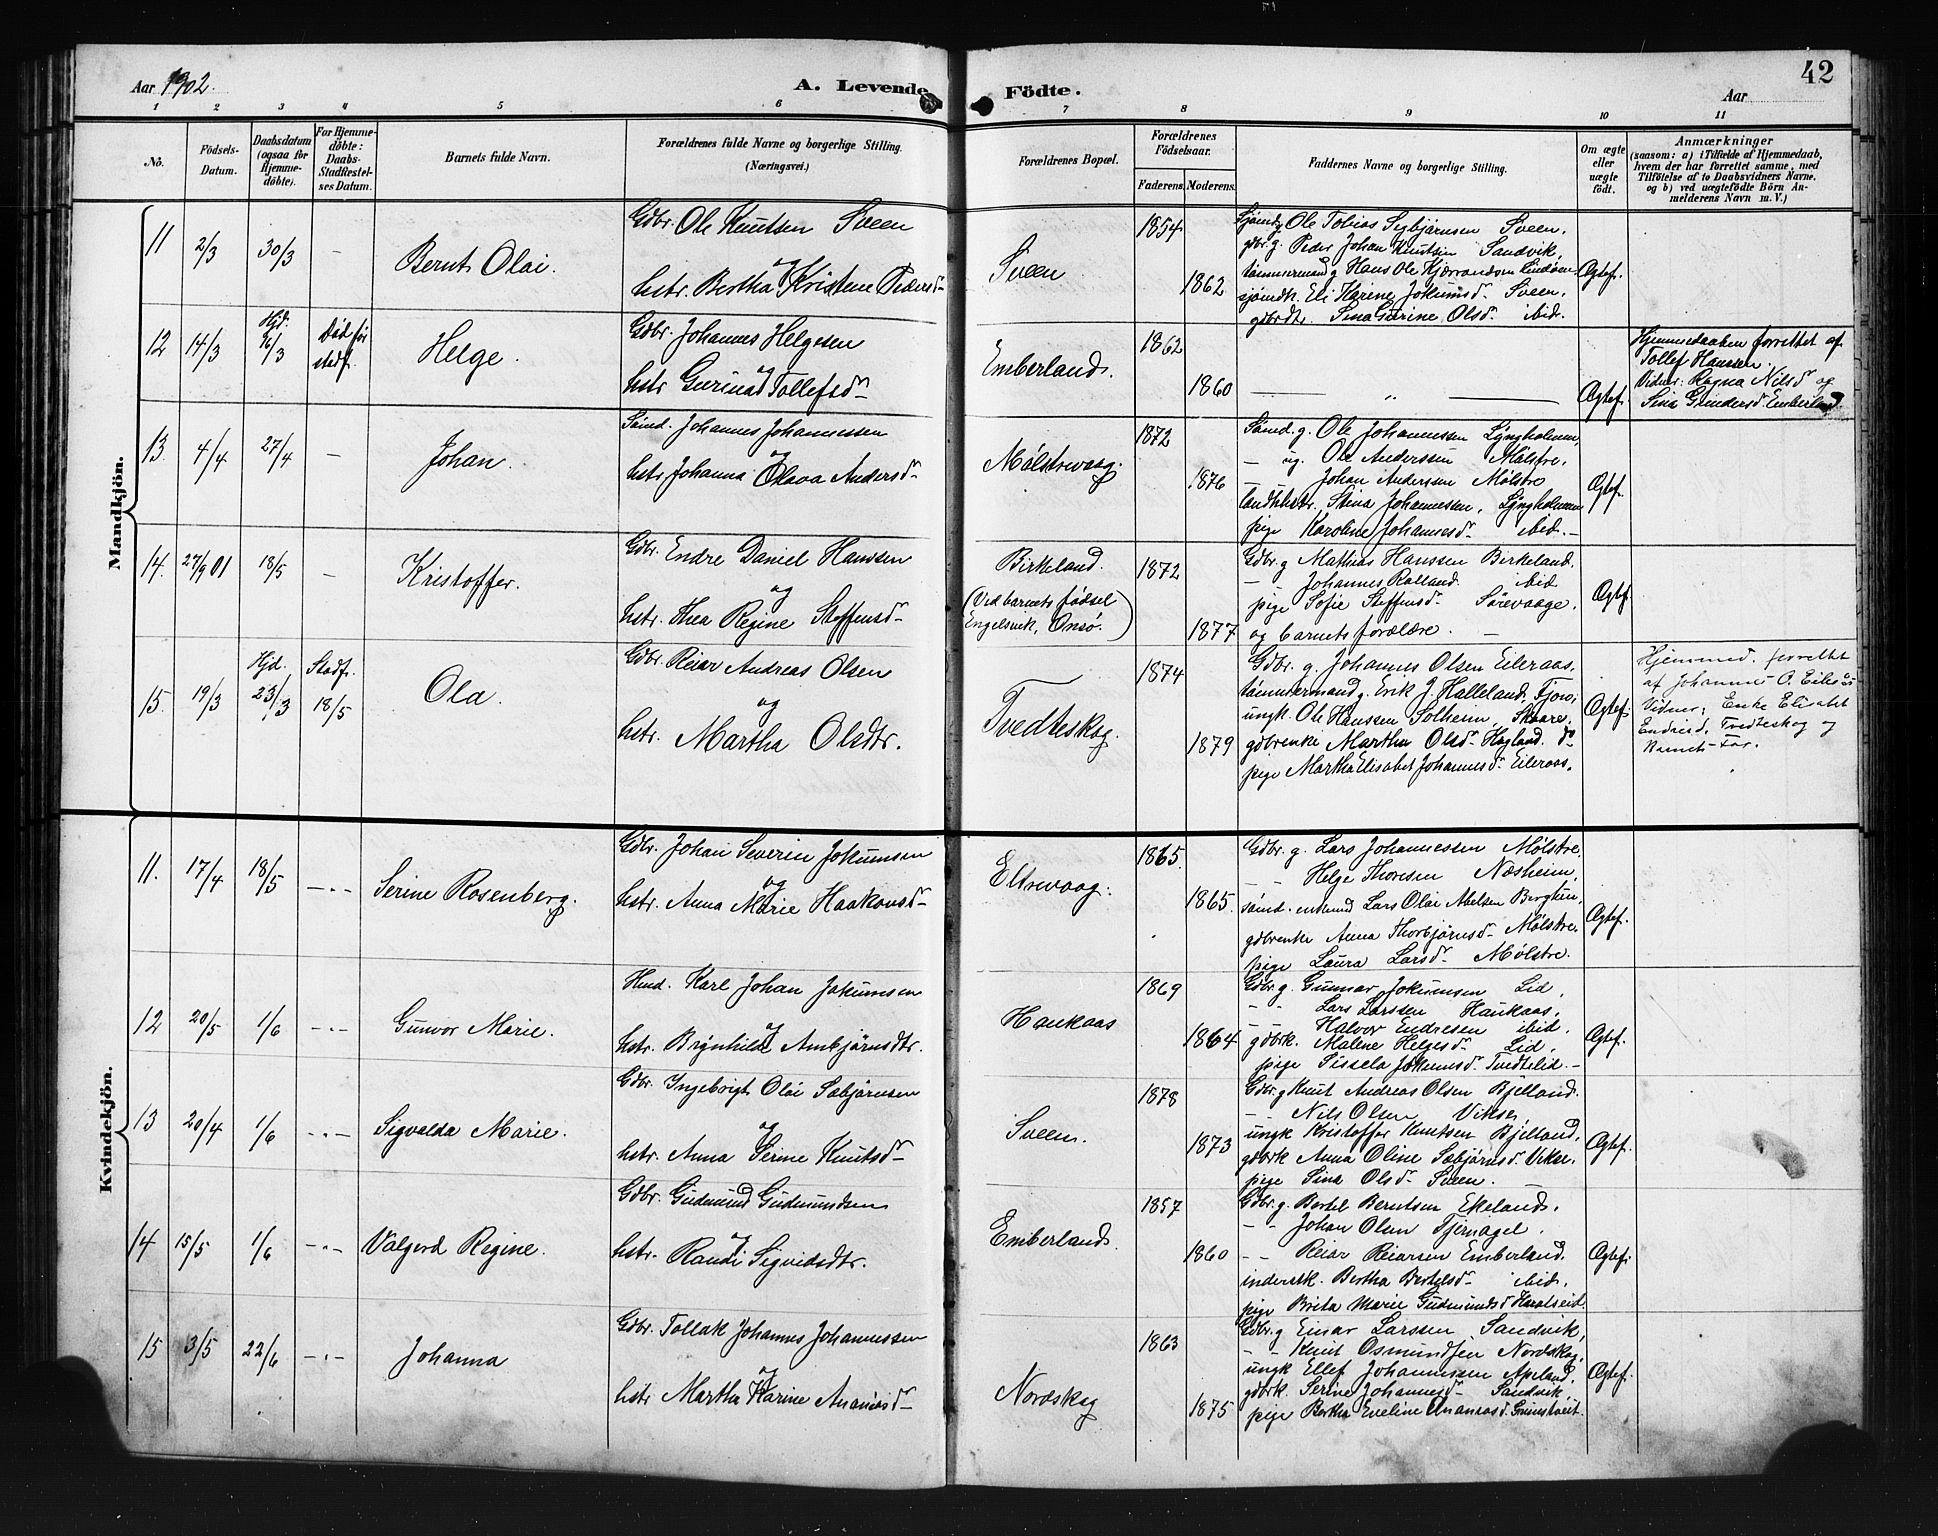 Aar 1902.
A. Levende Födte.
42
Aar
1 2 3 4 5 6 7 8 9 10 11
No.
Födsels-
Datum.
Daabsdatum
(ogsaa för
Hjemme-
döbte).
For Hjemme-
döbte:
Daabs-
Stadfæstel-
ses Datum.
Barnets fulde Navn.
Forældrenes fulde Navne og borgerlige Stilling.
(Næringsvei.)
Forældrenes Bopæl.
Forældrenes
Födselsaar.
Faderens. Moderens.
Faddernes Navne og borgerlige Stilling.
Om ægte
eller
uægte
födt.
Anmærkninger
(saasom: a) i Tilfælde af Hjemmedaab,
hvem der har forrettet samme, med
Tilföielse af to Daabsvidners Navne,
og b) ved uægtefödte Börn An-
melderens Navn m. V.)
Mandkjön.
11 2/3 30/3 -
Bernt Olai.
Gdbr. Ole Knutsen Sveen
og
hstr. Bertha Kristene Pedersd-
Sveen
1854
1862
Sjömd g. Ole Tobias Sigbjörnsen Sveen,
gbr. g. Peder Johan Knutsen Sandvik,
tömmermand g. Hans Ole
sjömdk. Eli Karine Jokumsd- Sveen,
gdbrdtr. Sina Gurine Olsd- ibid.
Ægtef.
12 14/3 Hjd. 16/3
Död før
stadf.
Helge.
Gdbr. Johannes Helgesen
og
hstr Gurina Tollefsd-
Emberland.
1862
1860
— „ —
Ægtef.
Hjemmedaaben forrettet af
Tollef Hansen
Vidner: Ragna Nilsd- og
Sina Emberland
13. 4/4 27/4 -
Johan.
Sömd. Johannes Johannessen
og
hstr. Johanna Olava Andersd-
Mölstrevaag.
1872
1876
Sömd. g. Ole Johannessen Lyngholmen,
— ug. Ole Anderssen Mölstre.
- - Johan Andersen Mölstre
Stina Johannessen, Lyngholmen
pige Karoline Johannesd- ibid. -
Ægtef.
14. 27/9 01 18/5 -
Kristoffer.
Gdbr. Endre Daniel Hanssen
og
hstr. Thea Regine Steffensd-
Birkeland.
(Ved barnets födsel
Engelsvik, Onsö.)
1872
1877
Gdbr. g Mathias Hanssen Birkeland.
- - Johannes Ralland. ibid
pige Sofie Steffensd- Sörevaage.
og barnets forældre. -
Ægtef.
15. 19/3 Hjd. 23/3
Stadf. 18/5
Ola.
Gdbr. Reiar Andreas Olsen
og
hstr. Martha Olsdtr.
Tvedteskog.
1874
1879
Gdbr. g. Johannes Olsen Eileraas.
tömmermand g. Erik J. Halleland, Fjon,
ungk. Ole Hanssen Solheim, Skaare.
gdbrenke Martha Olsd- Hagland. do
pige Martha Elisabet Johannesd- Eileraas.
Ægtef.
Hjemmed. forrettet
af Johannes O. Eileraas
Vidner: Enke Elisabet
Endresd, Tvedteskog og
Barnets Far.
Kvindekjön.
11. 17/4 18/5 -"-
Serine Rosenberg.
Gdbr. Johan Severin Jokumsen
og
hstr. Anna Marie Haakonsd-
Eltrevaag.
1865.
1865.
Gdbr. g. Lars Johannessen Mölstre.
- - Helge Thoresen Næsheim,
sömd. enkemd Lars Olai Abelsen
gdbrenke Anna Thorbjörnsd- Mölstre.
pige Laura Larsd- Mölstre.
Ægtef.
12 20/5 1/6 -"-
Gunvor Marie.
Hmd. Karl Johan Jokumsen
og
hstr. Brynhilde Ambjörnsdtr.
Haukaas
1869
1864
Gdbr. g. Gunnar Jokumsen Lid,
- - Lars Larssen Haukaas,
- - Halvor Endresen ibid.
gdbrk. Malene Helgesd- Lid,
pige Sissela Jokumsd- Tvedtelid. -
Ægtef.
13 20/4 1/6 -"-
Sigvalda Marie.
Gdbr. Ingebrigt Olai Sæbjörnsen
og
hstr. Anna Serine Knutsd-
Sveen.
1878
1873
Gdbr. g Knut Andreas Olsen Bjelland.
- - Nils Olsen Vikse,
ungk Kristoffer Knutsen Bjelland,
gdbrk Anna Oline Sæbjörnsd- Vikse.
pige Sina Olsd- Sveen.
Ægtef.
14 15/5 1/6 -"-
Valgerd Regine.
Gdbr. Gudmund Gudmundsen
og
hstr. Randi Sigvidsdtr.
Emberland.
1857
1860
Gdbr. g. Bertel Berntsen Ekeland.
- - Johan Olsen Tjernagel.
- - Reiar Reiarsen Emberland.
inderstk. Bertha Bertelsd- ibid.
pige Brita Marie Gudmundsd Haralseid.
Ægtef.
15 3/5 22/6 -"-
Johanna
Gdbr. Tollak Johannes Johannessen
og
hstr Martha Karine Ananiasd-
Nordskog
1863
1875
Gdbr. g Einar Larssen Sandvik,
- - Knut Osmundsen Nordskog,
ungk Ellef Johannessen Apeland,
gdbrk. Serine Johannesd- Sandvik,
pige Bertha Eveline Ananiasd.
Ægtef.